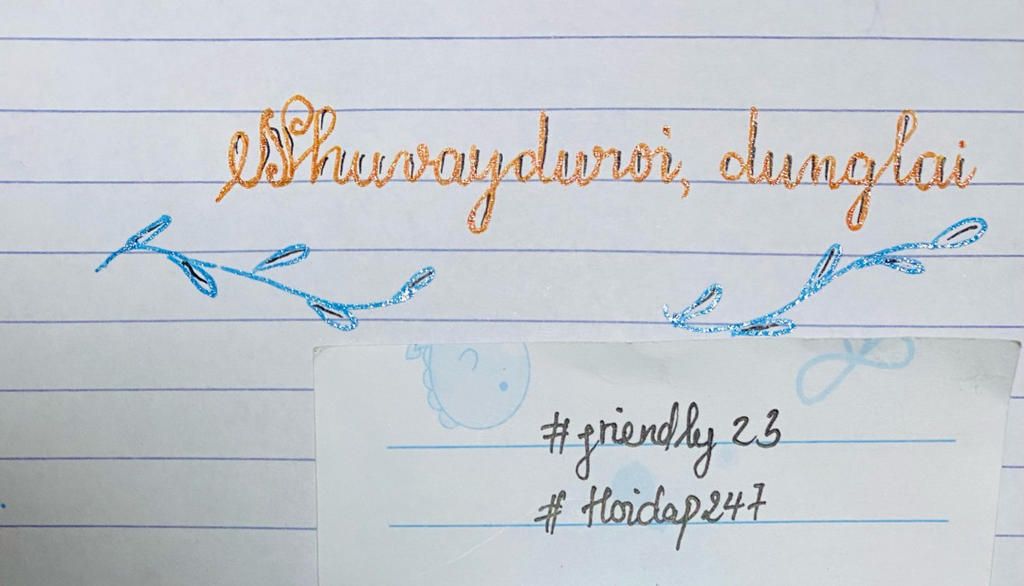 Nhuvayduroi, dunglai
#friendly 23
# Hoidap247